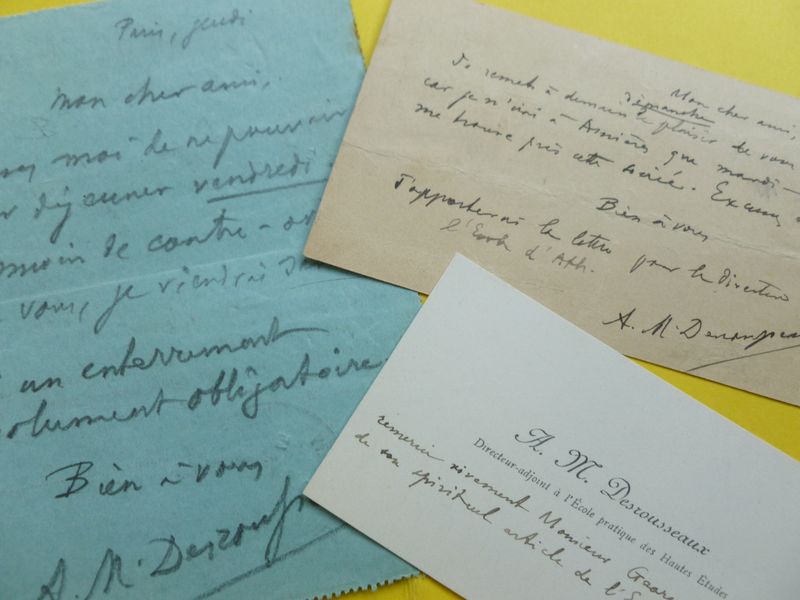 Paris, jeudi
Mon cher ami,
moi de ne pouvoir
déjeuner vendredi
moins de contre-or
vous, je viendrai
un enterrement
olument obligatoire
Bien à vous
A. M. Desrouss
Mon cher ami,
Je remets à demain le plaisir de vous
dimanche
car je n'irai à Asnières que mardi
me trouve pris cette soirée. Excusez
Bien à vous
J'apporterai la lettre pour le directeur
l'École d'Ath.
A. M. Desrousseau
A. M. Desrousseaux
Directeur-adjoint à l'École pratique des Hautes Études
remercie vivement Monsieur Georg
de son spirituel article de l'